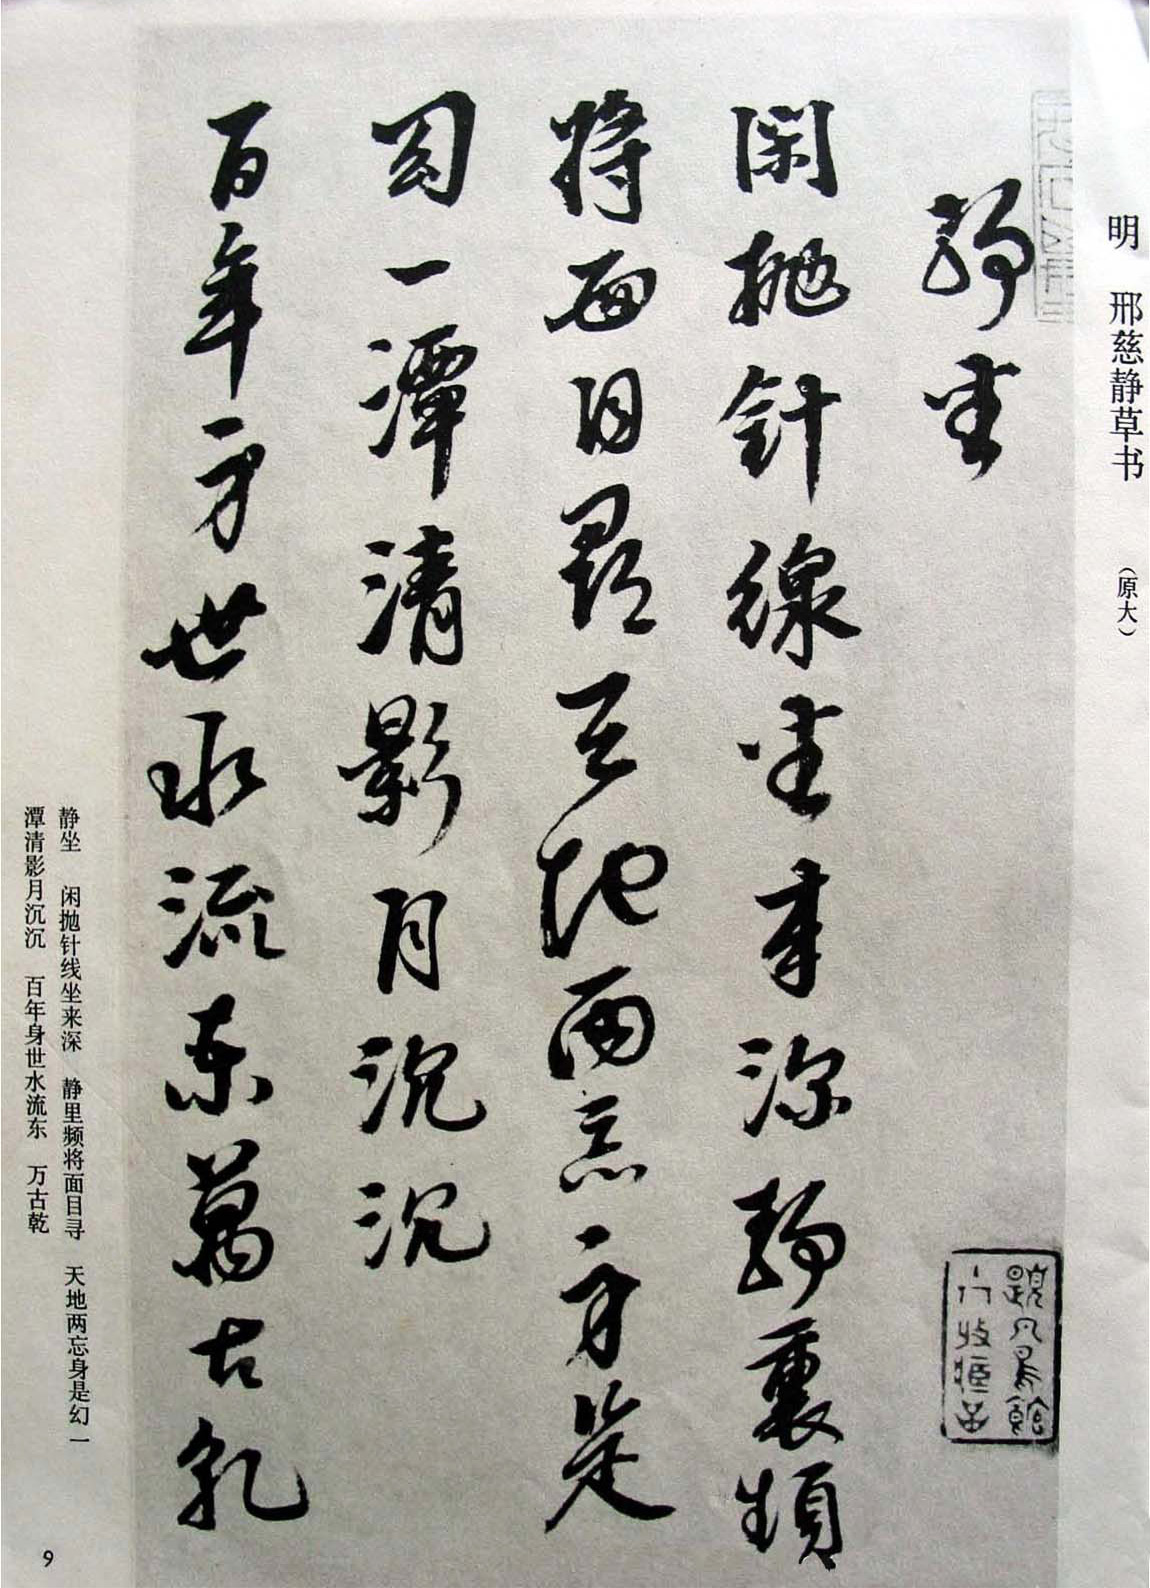 明 邢慈静草书 （原大）
静坐
闲抛针線坐来深静裏頻
将面目尋天地两忘身是
幻一潭清影月沉沉
百年身世水流東萬古乾
静坐 闲抛针线坐来深 静里频将面目寻 天地两忘身是幻 一
潭清影月沉沉 百年身世水流东 万古乾
9